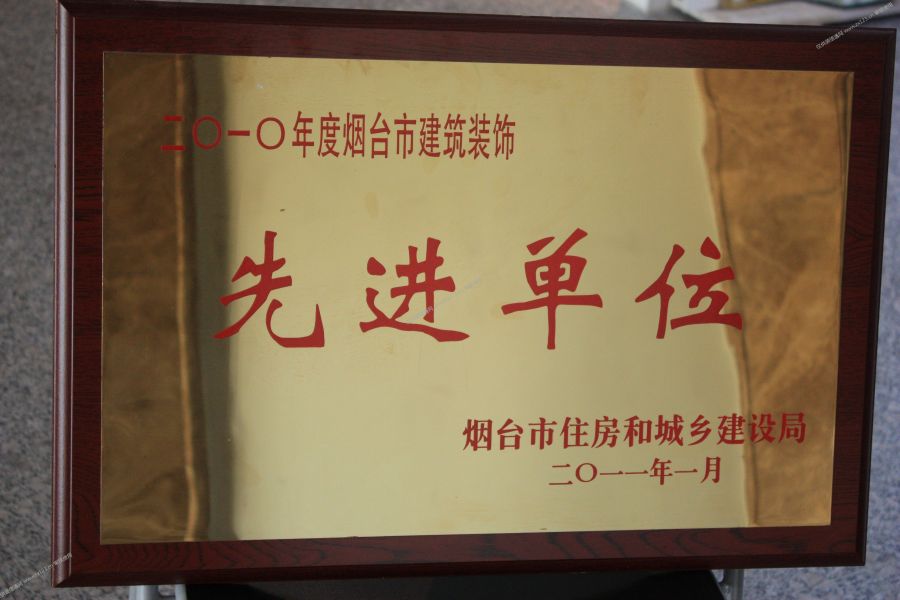 二〇一〇年度烟台市建筑装饰
先进单位
烟台市住房和城乡建设局
二〇一一年一月